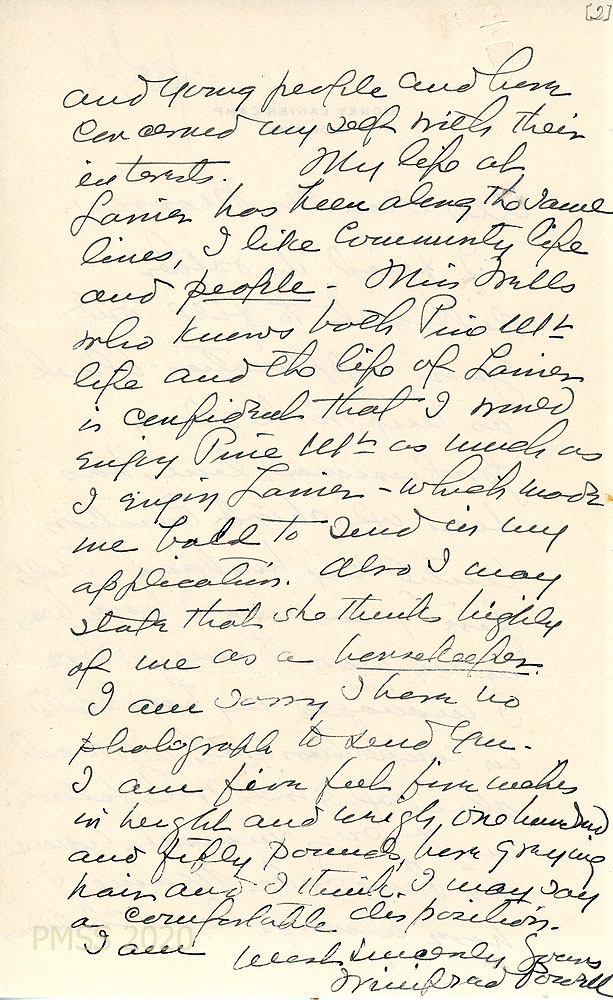 [2]
and young people and have
concerned myself with their
interests. My life at
Lanier has been along the same
lines, I like Community life
and people - Miss Wells
who knows both Pine Mt
life and the life of Lanier
is confident that I would
enjoy Pine Mt as much as
I enjoy Lanier - which made
me bold to send in my
application. Also I may
state that she thinks highly
of me as a housekeeper.
I am sorry I have no
photograph to send you.
I am five feet five inches
in height and weigh, one hundred
and fifty pounds, have graying
hair and I think. I may say
a comfortable disposition.
I am most sincerely yours
Winifred Powell
PMSS 2020